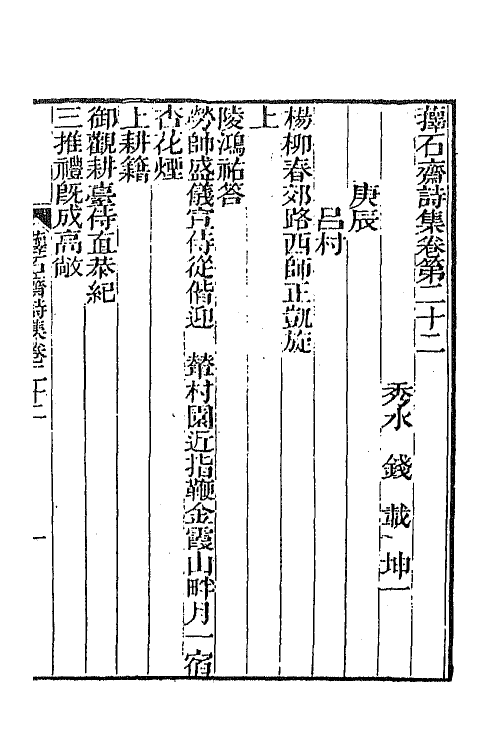 蘀石齋詩集卷第二十二
秀水 錢 載 坤一
庚辰
呂村
楊柳春郊路西師正凱旋
上
陵鴻祐答
勞師盛儀宣侍從偕迎 輦村園近指鞭金霞山畔月一宿
杏花煙
上耕籍
御觀耕臺侍直恭紀
三推禮既成高敞
蘀石齋詩集卷二十二 一